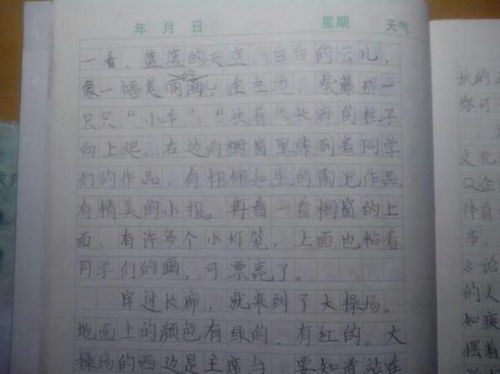 年 月 日 星期 天气
一看，蓝蓝的天空，白白的云儿，
像一幅美丽画，走左边，紫藤那一
只只“小手”，“扶着”长廊的柱子
向上爬，右边的橱窗里陈列着同学
们的作品，有栩栩如生的陶泥作品，
有精美的小报。再看一看橱窗的上
面，有许多个小灯笼，上面也粘着
同学们的画，可漂亮了。
穿过长廊，就来到了大操场。
地面上的颜色有绿的，有红的。大
操场的西边是主席台，要知道站在
文化
Q企
体育
的人
如
摇着